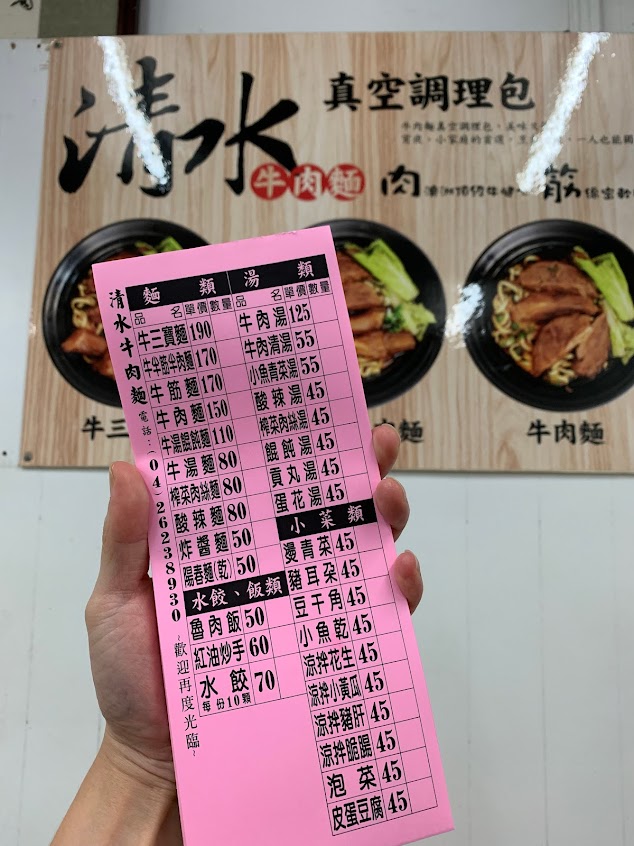 清水
牛肉麵
真空調理包
牛肉麵真空調理包,美味
一人也能
肉
筋
牛三
麵
牛肉麵
清水牛肉麵 電話:(04)26238930 ~歡迎再度光臨~
麵類
品名 單價 數量
牛三寶麵 190
牛半筋半肉麵 170
牛筋麵 170
牛肉麵 150
牛湯餛飩麵 110
牛湯麵 80
榨菜肉絲麵 80
酸辣麵 80
炸醬麵 50
陽春麵(乾) 50
水餃、飯類
魯肉飯 50
紅油炒手 60
水餃 70
每份10顆
湯類
品名 單價 數量
牛肉湯 125
牛肉清湯 55
小魚青菜湯 55
酸辣湯 45
榨菜肉絲湯 45
餛飩湯 45
貢丸湯 45
蛋花湯 45
小菜類
燙青菜 45
豬耳朵 45
豆干角 45
小魚乾 45
涼拌花生 45
涼拌小黃瓜 45
涼拌豬肝 45
涼拌脆腸 45
泡菜 45
皮蛋豆腐 45